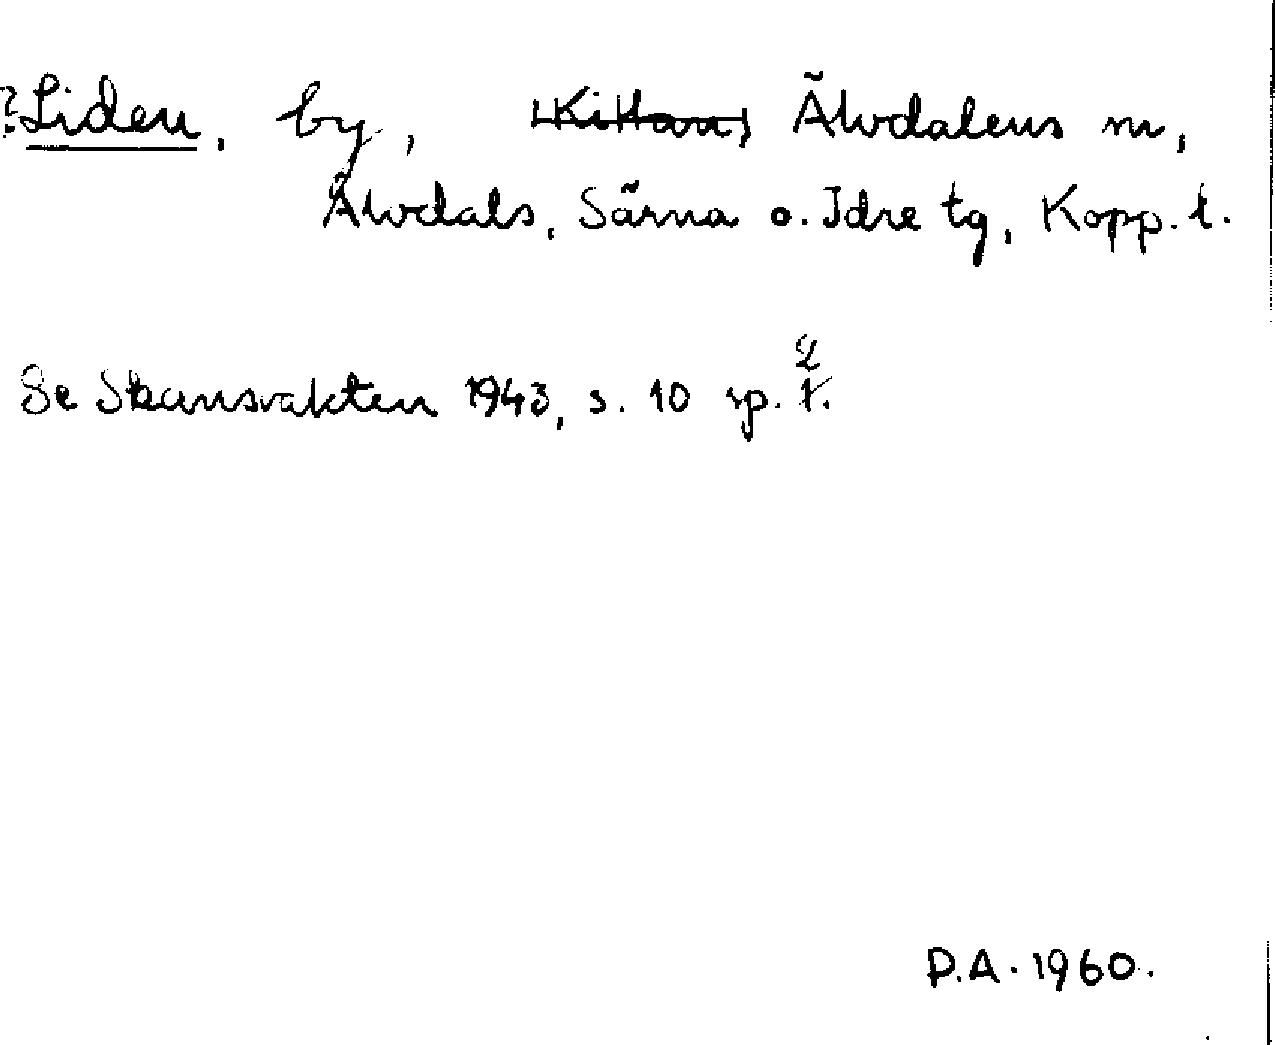 ?Liden, by, Kittan, Älvdalens sn,
Älvdals, Särna o. Idre tg, Kopp. l.
2
Se Skansvakten 1943, s. 10 sp. 1.
D.A. 1960.